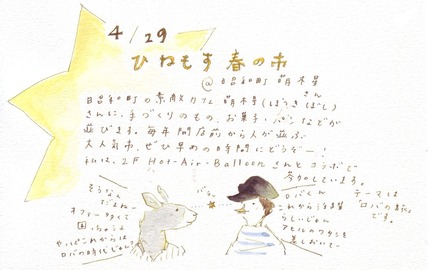 4/29
ひねもす春の市
@日呂和町 萌木星
日呂和町の素敵カフェ萌木星(ほうきぼし)さん
さんに、手づくりのもの、お菓子、パンなどが
並びます。毎年開店前から人が並ぶ
大人気市。ぜひ早めの時間にどうぞー!
私は、2F Hot-Air-Balloonさんとコラボで
参加しています。
テーマは
「ロバの旅」
です。
そうなん
だよねー
オファー多くて
困っちゃうよ
やっぱこれからは
ロバの時代じゃん?
ロバくん
これから注目
らしいじゃん
アヒルのワタシを
差しおいてー